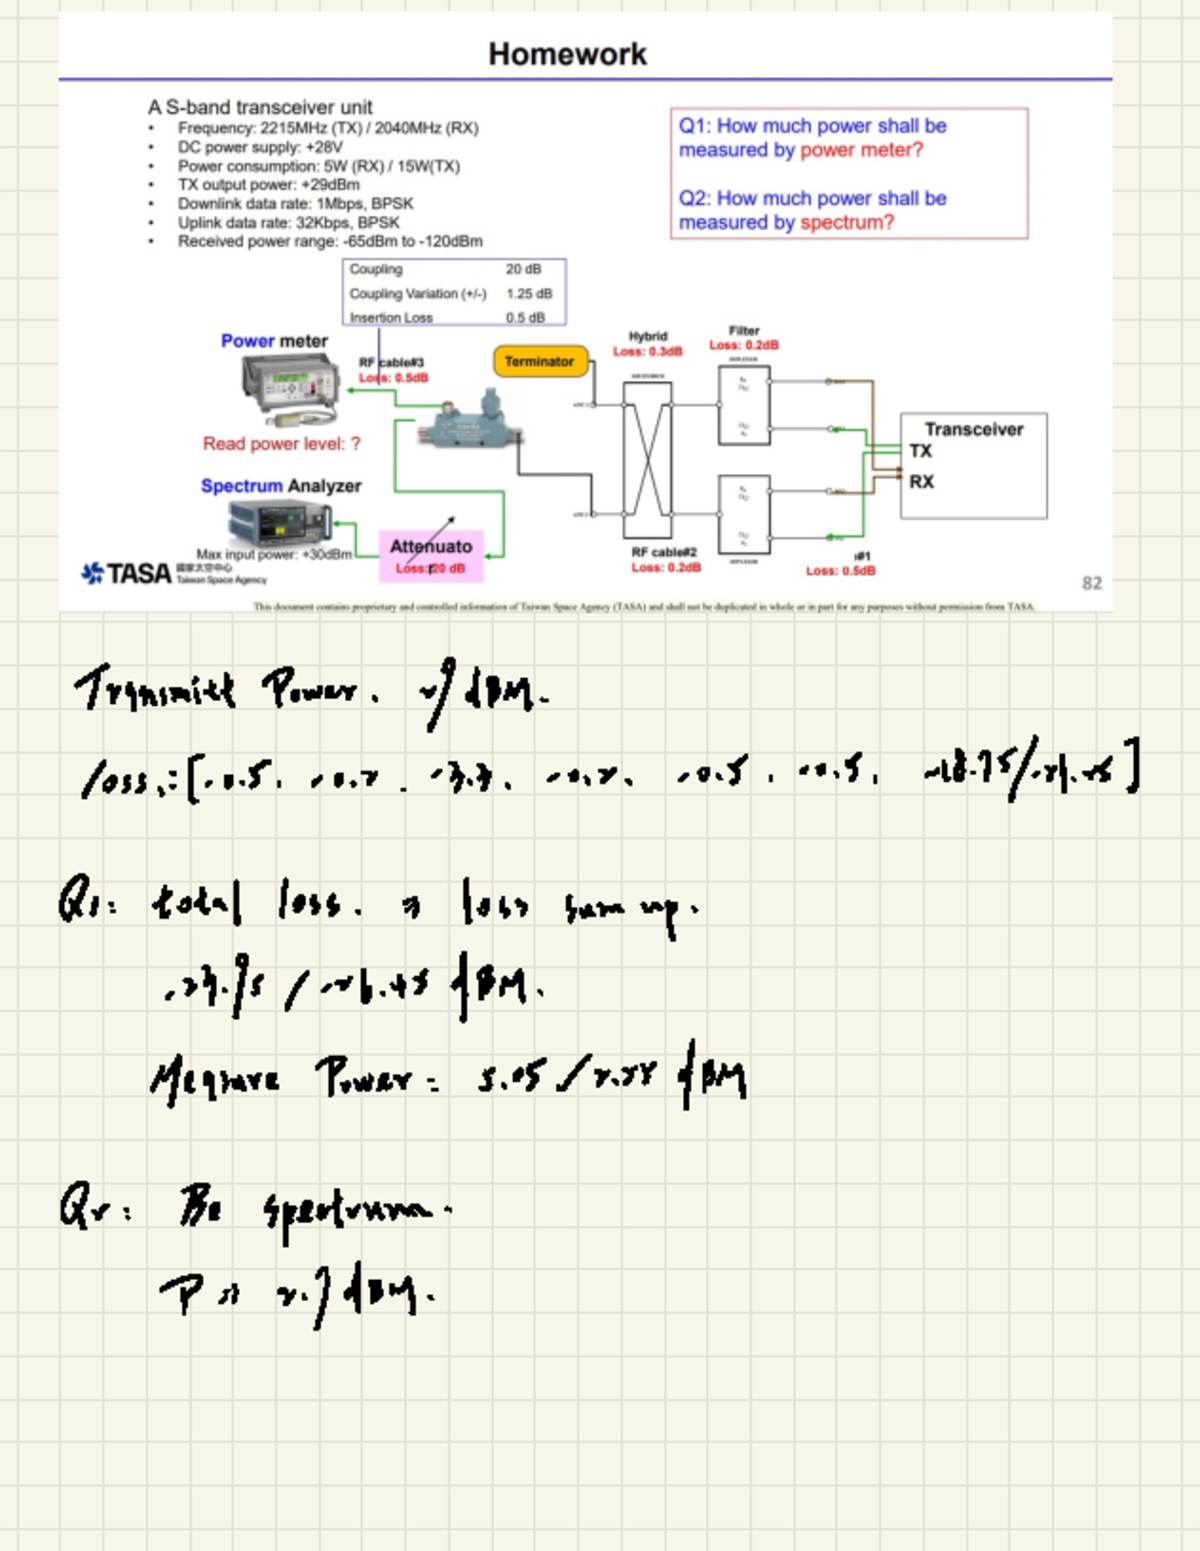 Homework
A S-band transceiver unit
• Frequency: 2215MHz (TX) / 2040MHz (RX)
• DC power supply: +28V
• Power consumption: 5W (RX) / 15W(TX)
• TX output power: +29dBm
• Downlink data rate: 1Mbps, BPSK
• Uplink data rate: 32Kbps, BPSK
• Received power range: -65dBm to -120dBm
Q1: How much power shall be
measured by power meter?
Q2: How much power shall be
measured by spectrum?
Coupling 20 dB
Coupling Variation (+/-) 1.25 dB
Insertion Loss 0.5 dB
Power meter
RF cable#3
Loss: 0.5dB
Terminator
Hybrid
Loss: 0.3dB
Filter
Loss: 0.2dB
Read power level: ?
Transceiver
TX
RX
Spectrum Analyzer
Max input power: +30dBm
Attenuato
r
Loss: 20 dB
RF cable#2
Loss: 0.2dB
#1
Loss: 0.5dB
TASA 國家太空中心
Taiwan Space Agency
82
This document contains proprietary and controlled information of Taiwan Space Agency (TASA) and shall not be duplicated in whole or in part for any purposes without permission from TASA.
Transmitt Power. 29 dBM.
loss.:[-0.5. -0.2. -3.3. -0.2. -0.5. -0.5. -18.75/-21.25]
Q1: total loss. → loss sum up.
-23.95 / -26.45 dBM.
Measure Power = 5.05 / 2.55 dBM
Q2: Be spectrum.
P 2.7 dBM.